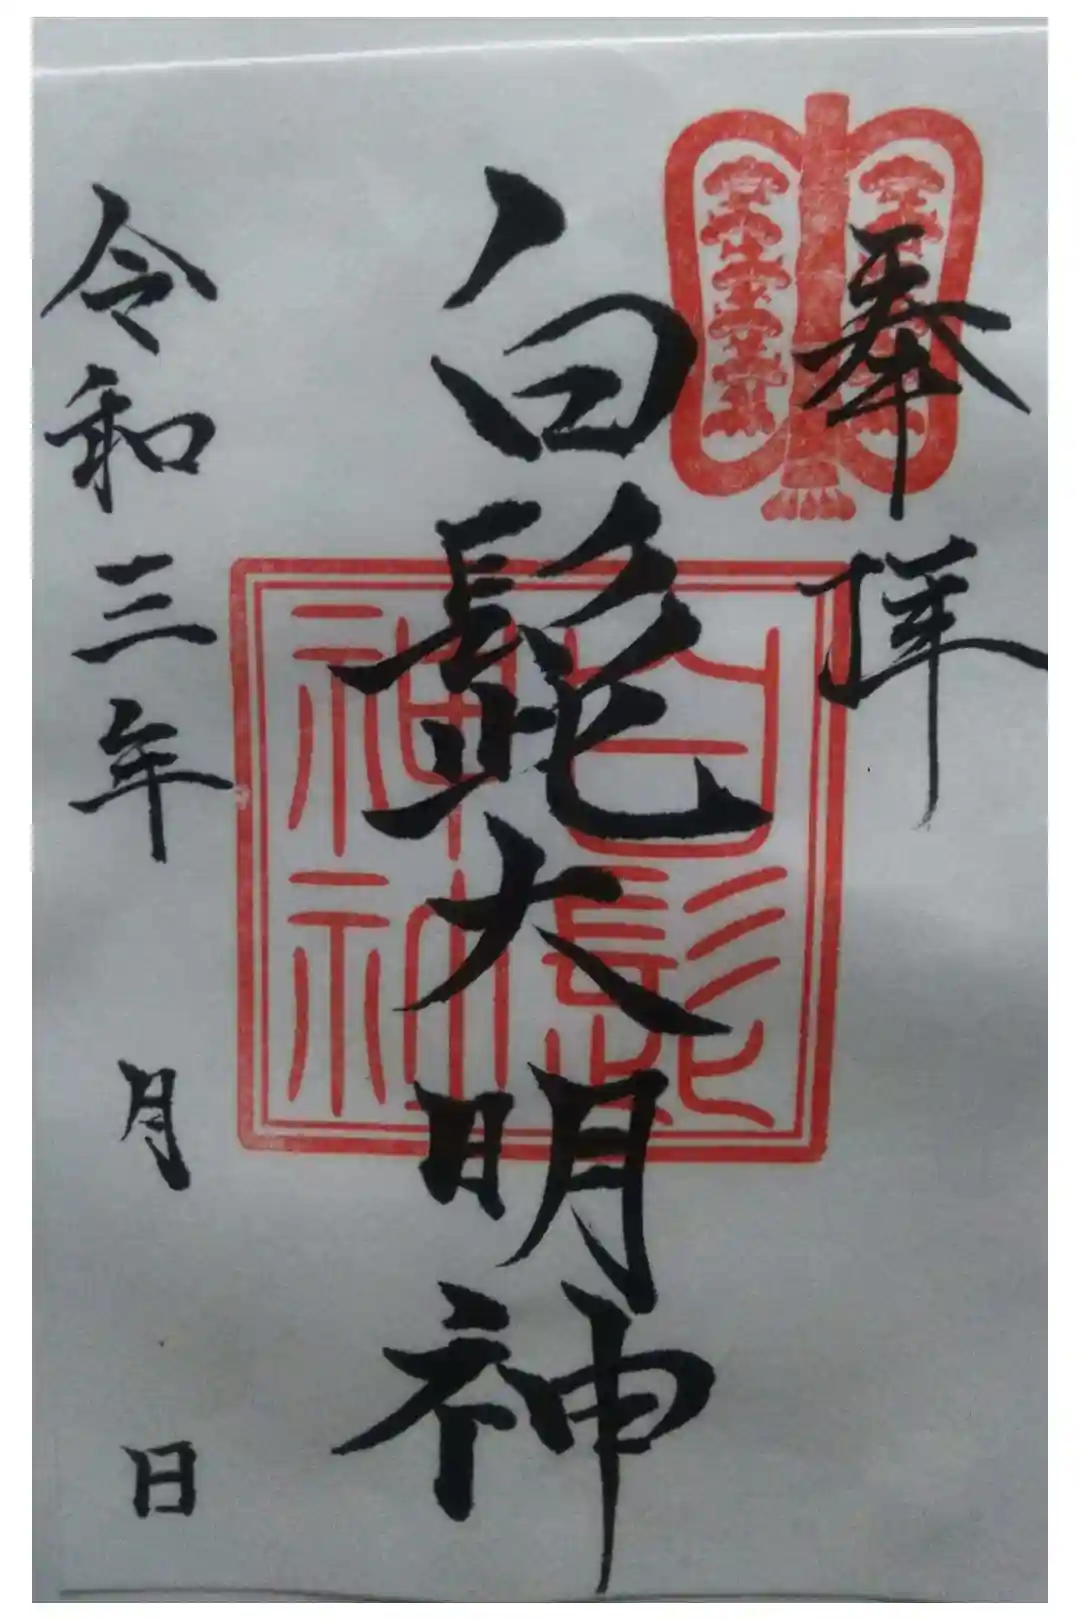 奉拝
白髭大明神
白髭
神社
令和三年 月 日